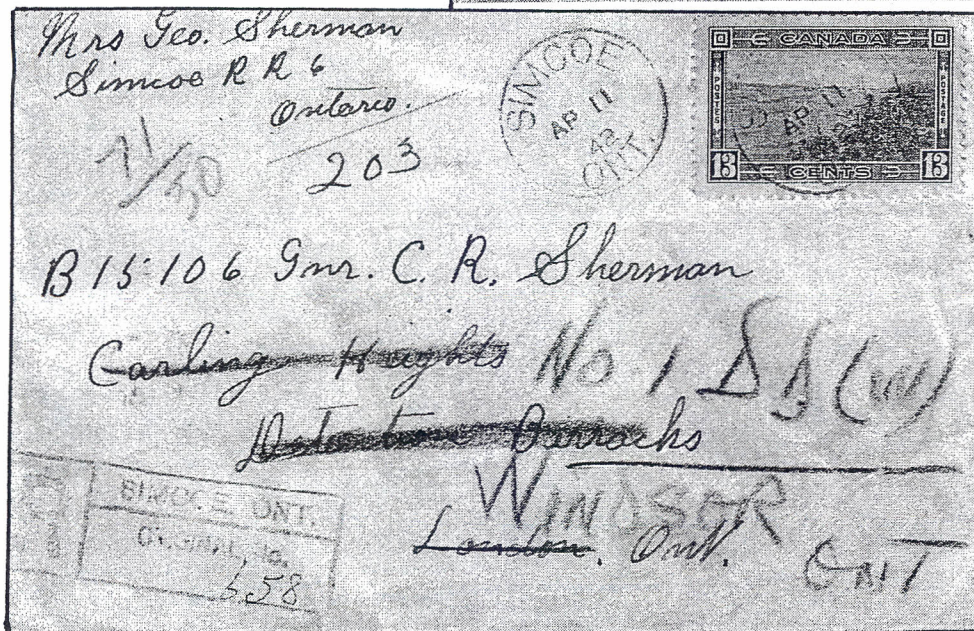 Mrs Geo. Sherman
Simcoe R R 6
Ontario.
203
71/50
SIMCOE
AP 11
42
ONT.
CANADA
POSTES
POSTAGE
AP 11
13 CENTS 13
B15106 Gnr. C. R. Sherman
Carling Heights
No 1 D B (W)
Detention Barracks
WINDSOR
London, Ont.
ONT
SIMCOE, ONT.
ORIGINAL No.
658